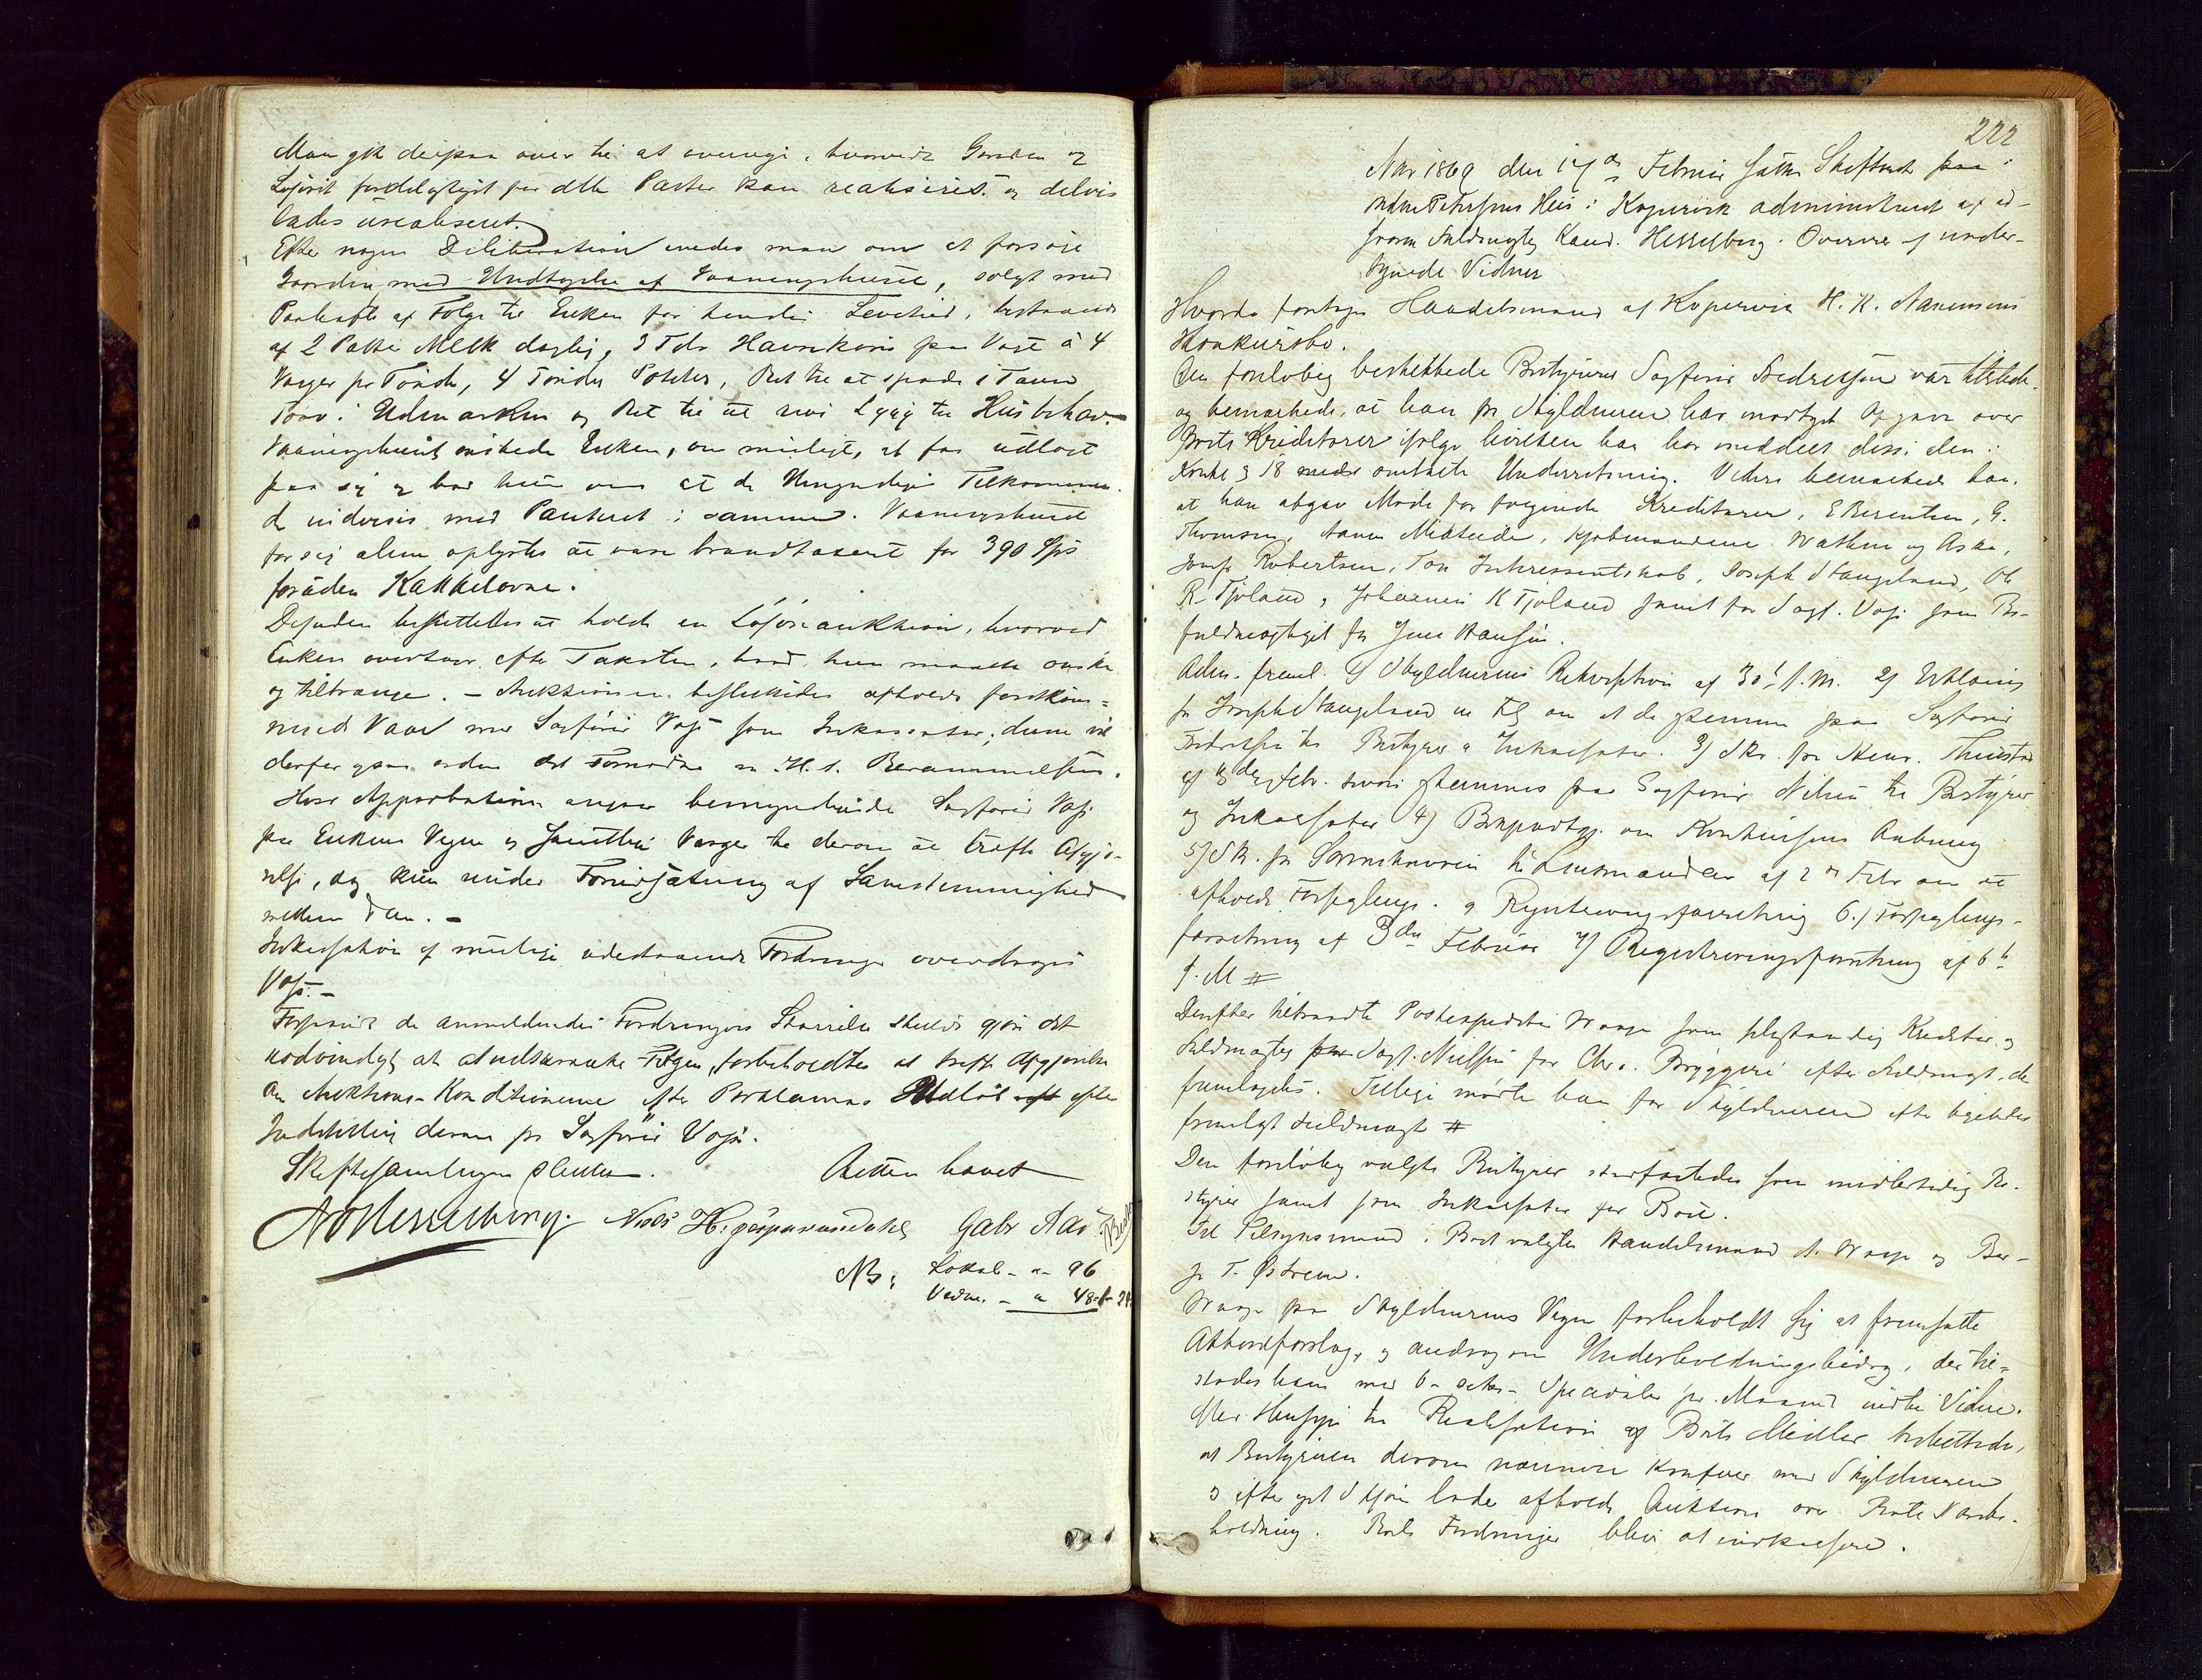 Man gik derpaa over til at overveje, hvorvidt Gaarden og
Løsøret fordelagtigst for alle Parter kan realiseres og delvis
lades urealiseret.
Efter nogen Deliberation enedes man om at forsøge
Gaarden med Undtagelse af Vaaningshuset, solgt med
Paahefte af Følge til Enken for hendes Levetid, bestaaende
af 2 Potter Melk daglig, 3 Tdr Havrekorn paa Vægt à 4
Vaager pr Tønde, 4 Tønder Poteter, Ret til at spade i Taunn
Torv i Udmarken og Ret til at rive Lyng til Husbehov.
Vaaningshuset ønskede Enken, om muligt, at faa udlagt
paa sig og bad hun om at de Umyndiges Tilkommen-
de indvises med Panteret i samme. Vaaningshuset
for sig alene oplystes at være brandtaxeret for 390 Spd
foruden Kakkelovne.
Desuden besluttedes at holde en Løsøreauktion, hvorved
Enken overtager efter Taksten, hvad hun maatte ønske
og tiltrænge. – Auktionen besluttedes afholdt førstkom=
mende Vaar med Sagfører Vogt som Inkassator; denne vil
derfor gjøre andre det Fornødne m. H. t. Berammelsen.
Hvad Approbation angaar bemyndigede Sagfører Vogt
paa Enkens Vegne og samtlige Værger til derom at træffe Afgjø-
relse, dog kun under Forudsætning af Samstemmighed
mellem dem. –
Inkassation af mulige udestaaende Fordringer overdroges
Vogt. –
Forsaavidt de anmeldende Fordringers Størrelse skulde gjøre det
nødvendigt at indskrænke Følgen, forbeholdtes at træffe Afgjørelse
om Auktions-Konditionerne efter Proklamas Udløb efter
Indstilling derom fra Sagfører Vogt.
Skiftesamlingen sluttet. Retten hævet
N O Hesselberg. Niels H. Gabr Aas
NB: Lokal – " – 96
Vidne. – " 48 – 1 – 24
222
Aar 1869 den 17de Februar sattes Skifteret paa i
Madme Petersens Hus i Kopervik administreret af ed-
svoren Fuldmægtig Kand. Hesselberg. Overvær af under-
tegnede Vidner
Hvorda foretoges Handelsmand af Kopervik H. K. Naremsens
Konkursbo.
Den foreløbig beskikkede Bestyrer Sagfører Fredriksen var tilstede
og bemærkede, at han fra Skyldneren har modtaget Opgave over
Boets Kreditorer ifølge hvilken han har meddelt disse den i
Konkl § 18 omtalte Underretning. Videre bemærkede han,
at han afgav Møde for følgende Kreditorer, E Berentsen, G.
Thomsen, Kjøbmændene Wathne og Aske,
Josep Robertsen, Tou Interessentskab, Joseph Stangeland, Ole
R Tjøland, Johannes K Tjøland samt for Sagf. Vogt som Be-
fuldmægtiget for Jens Hansen.
Adm. freml. 1) Skyldnerens Rekvisition af 30te f. M. 2) Erklæring
fra Joseph Stangeland m Fl om at de stemmer paa Sagfører
Fredriksen til Bestyrer og Inkassator. 3) Skr. fra Henr. Thuestad
af 13de Febr. hvori stemmes paa Sagfører Nilsen til Bestyrer
og Inkassator 4) om Konkursens Aabning
5) Skr. fra Sorenskriveren til Lensmanden af 2den Febr om at
afholde Forseglings- og Registreringsforretning 6.) Forseglings-
forretning af 3die Februar 7) Registreringsforretning af 6te
f. M #
Derefter tilstaadte Postexpeditør Waage som selvstændig Kreditor og
Fuldmægtig for Sagf. Nielsen for Chr. s. Bryggeri efter Fuldmagt, der
fremlagdes. Tillige mødte han for Skyldneren efter ligeledes
fremlagt Fuldmagt #
Den foreløbig valgte Bestyrer stadfæstedes som midlertidig Be-
styrer samt som Inkassator for Boet.
Til Tilsynsmænd i Boet valgtes Handelsmænd A. Waage og Ber-
ge T. Østrem.
Waage paa Skyldnerens Vegne forbeholdt sig at fremsætte
Akkordforslag, og androg om Underholdningsbidrag, der til-
stodes ham med 6 – seks – Speciedaler pr. Maaned indtil Videre.
Med Hensyn til Realisation af Boets Midler besluttedes,
at Bestyreren derom nærmere konfererer med Skyldneren
og efter eget Skjøn lade afholde Auktion over Boets Vare-
holdning. Boets Fordringer blev at inkassere.